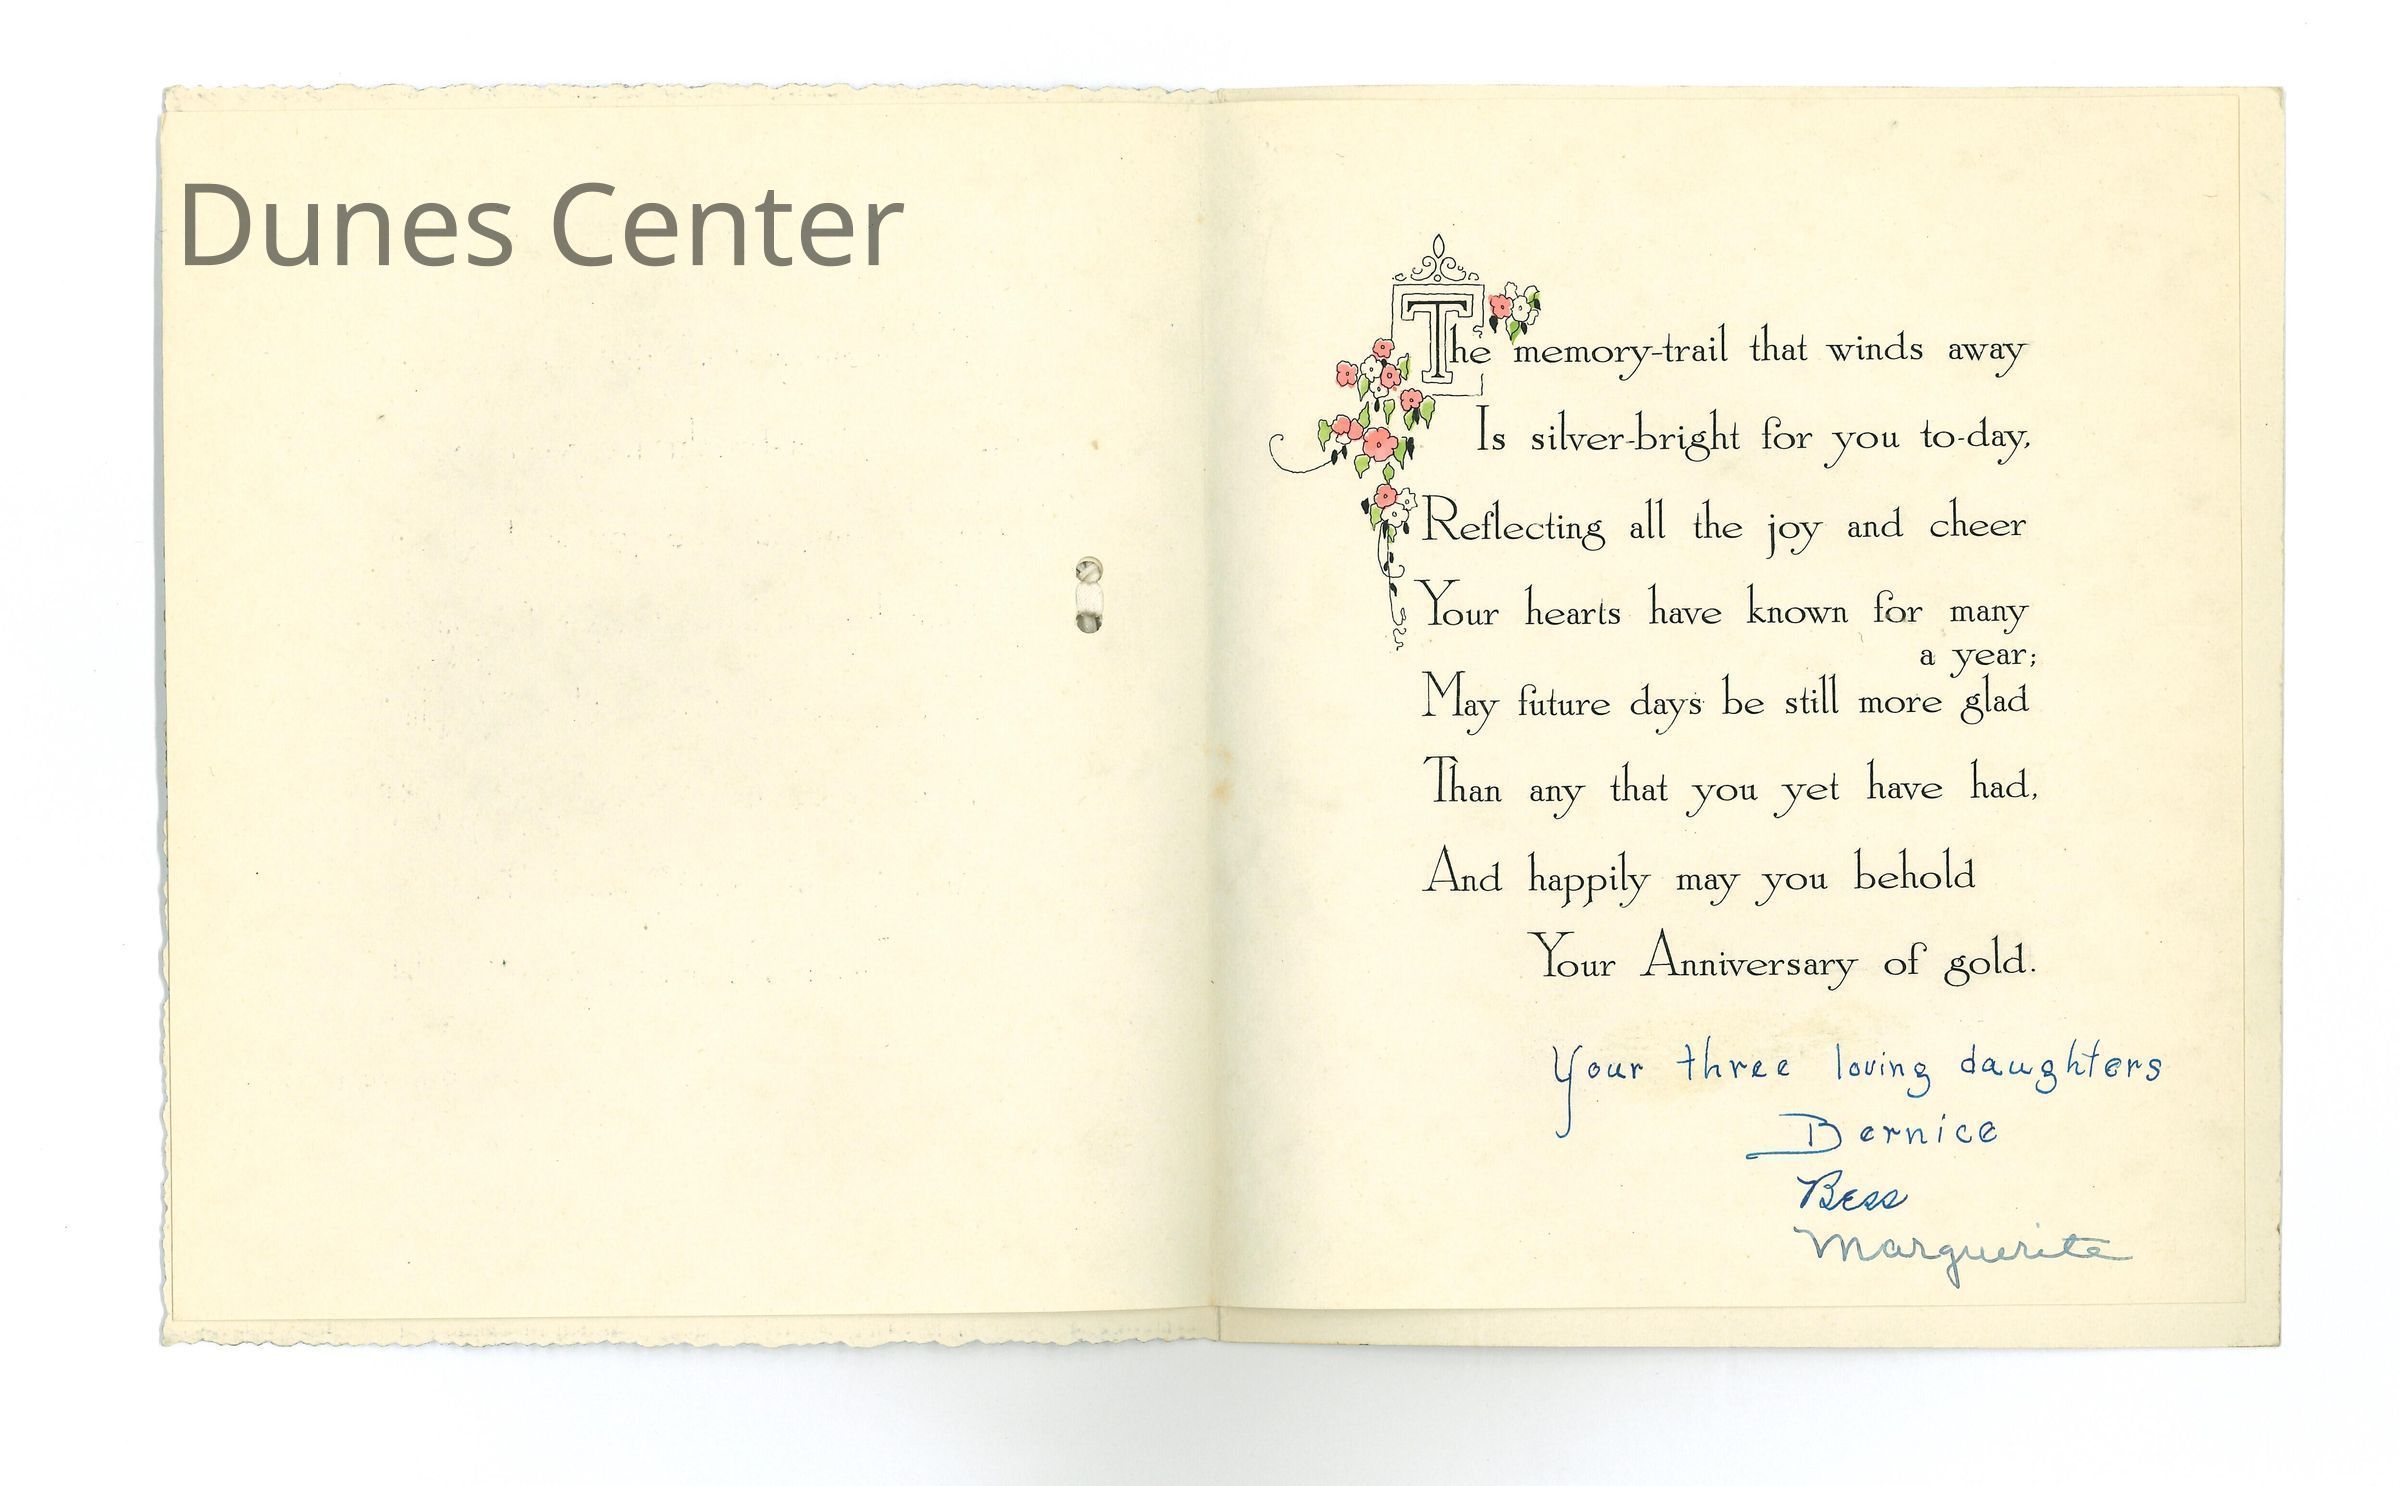 Dunes Center
The memory-trail that winds away
Is silver-bright for you to-day,
Reflecting all the joy and cheer
Your hearts have known for many
a year;
May future days be still more glad
Than any that you yet have had,
And happily may you behold
Your Anniversary of gold.
Your three loving daughters
Bernice
Bess
Marguerite